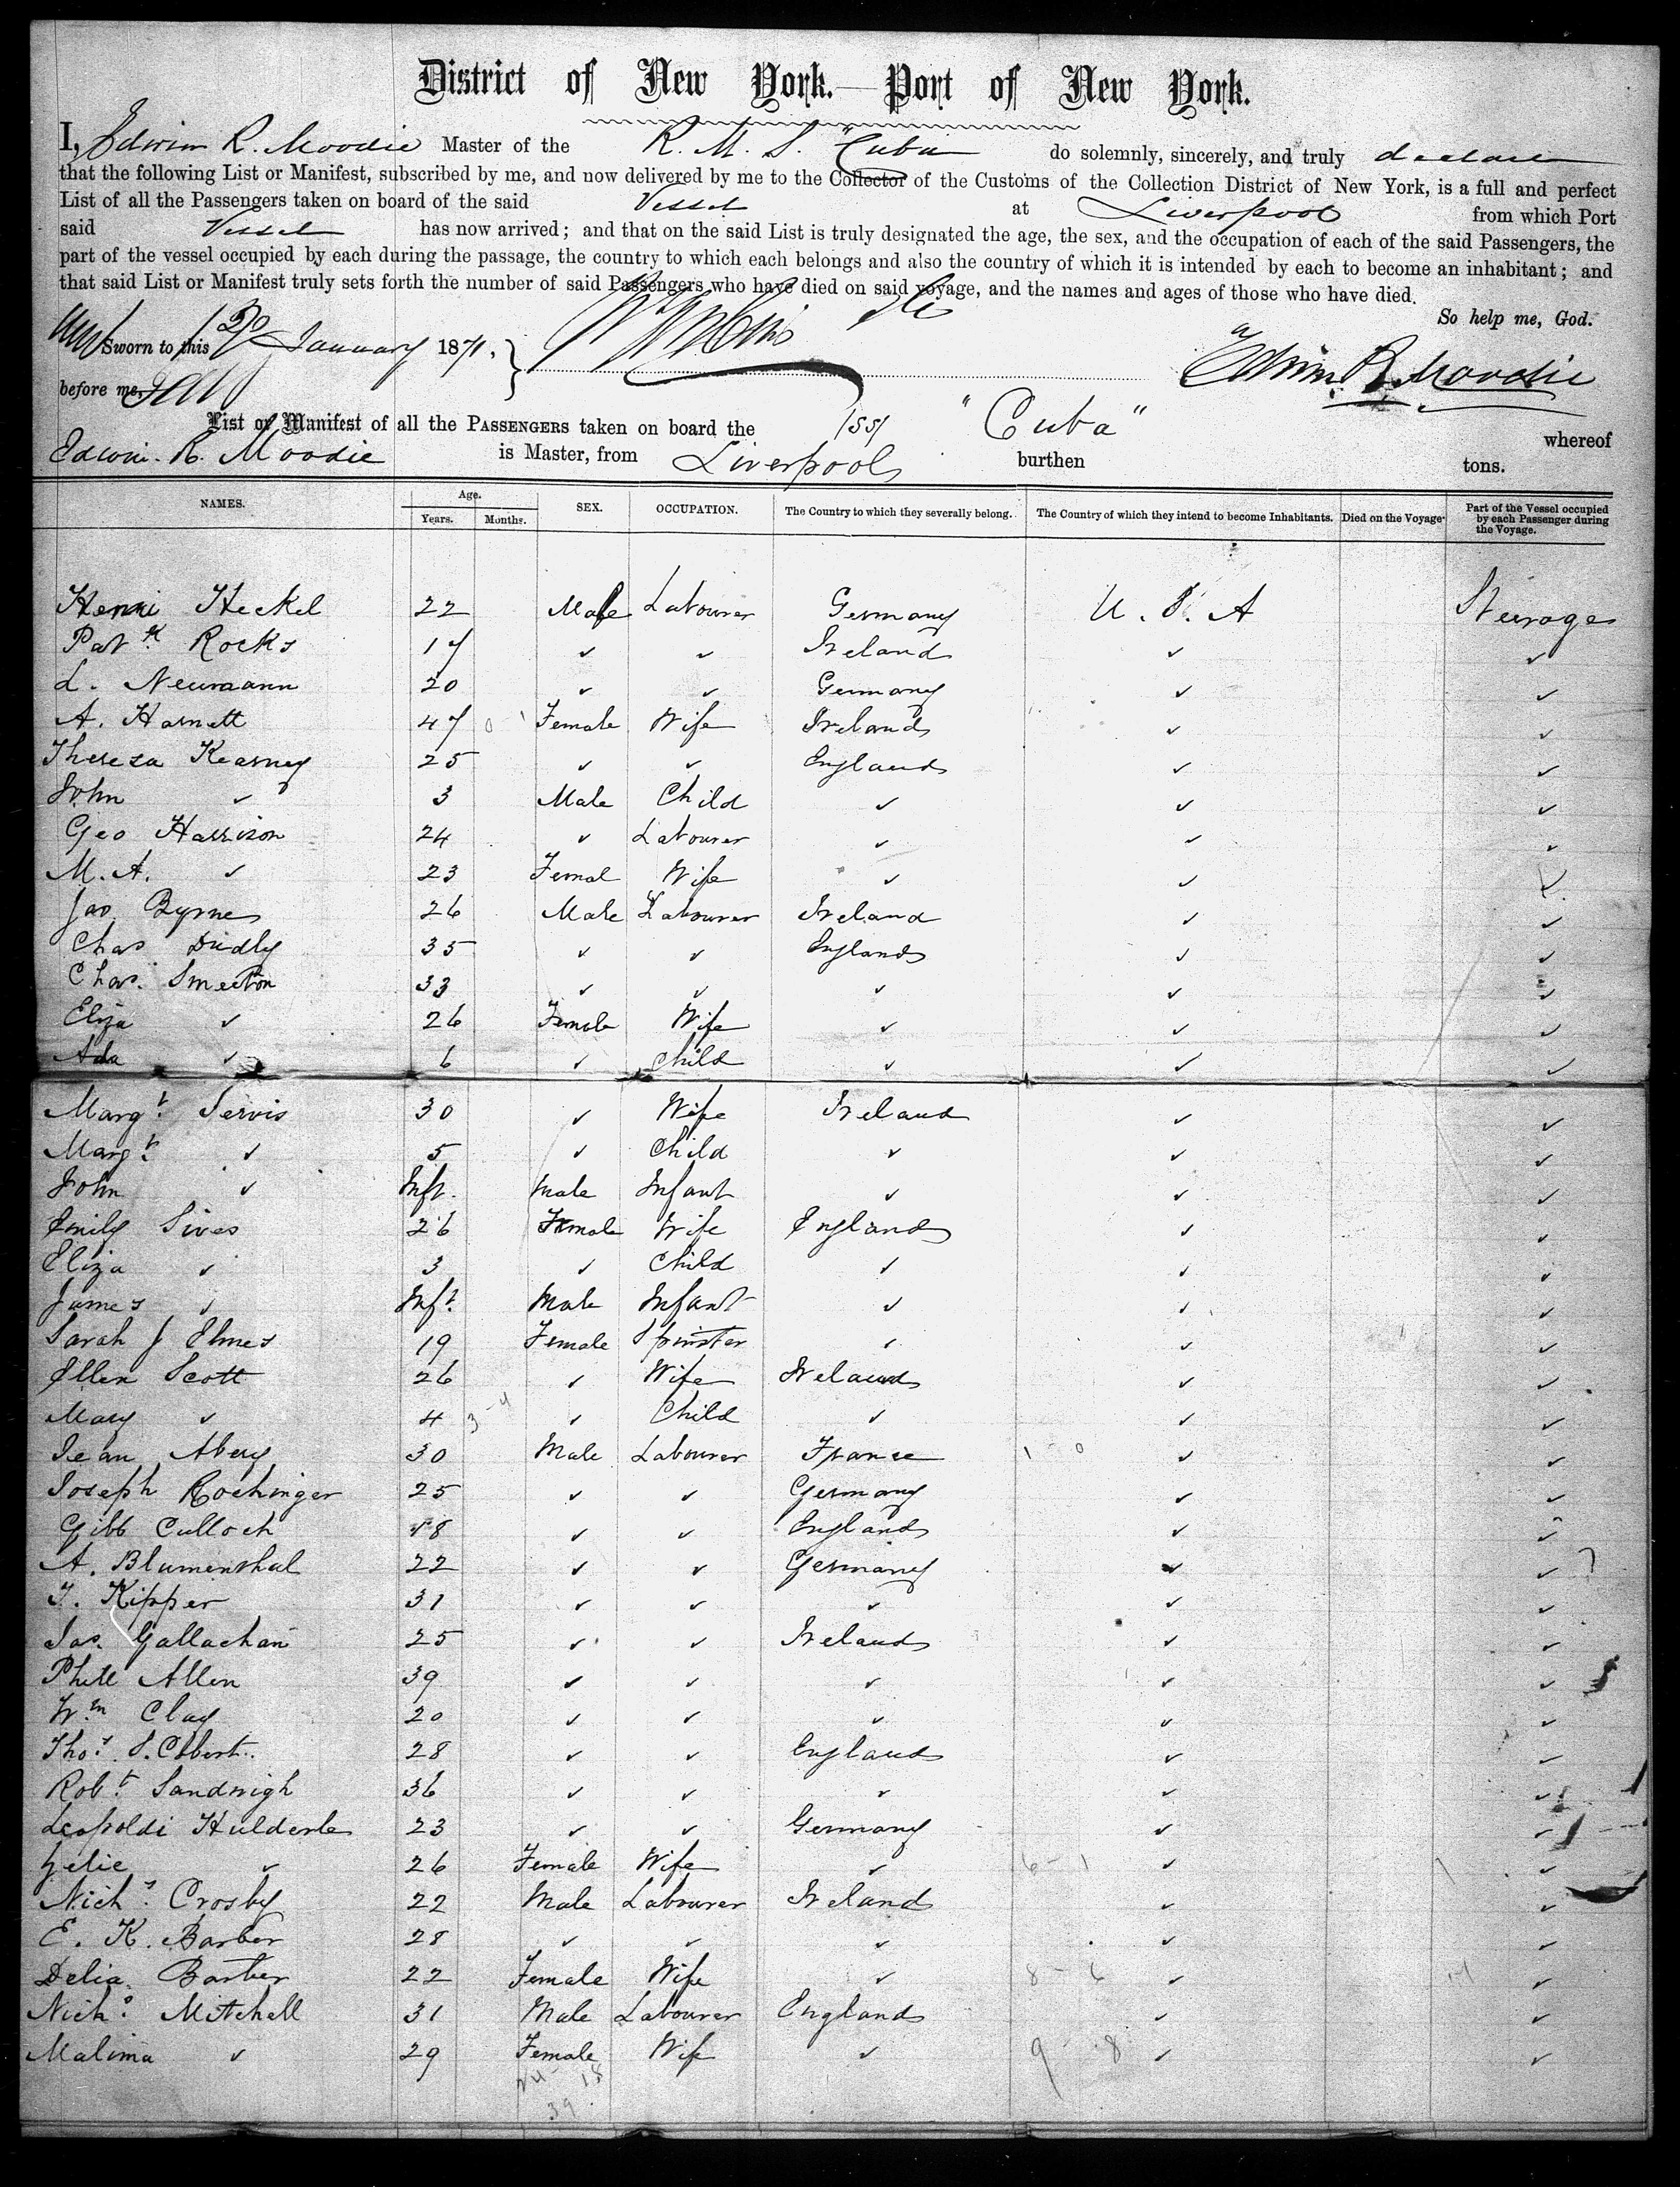 District of New York.—Port of New York.
I, Edwin R. Moodie Master of the R. M. S. "Cuba do solemnly, sincerely, and truly declare
that the following List or Manifest, subscribed by me, and now delivered by me to the Collector of the Customs of the Collection District of New York, is a full and perfect
List of all the Passengers taken on board of the said Vessel at Liverpool from which Port
said Vessel has now arrived; and that on the said List is truly designated the age, the sex, and the occupation of each of the said Passengers, the
part of the vessel occupied by each during the passage, the country to which each belongs and also the country of which it is intended by each to become an inhabitant; and
that said List or Manifest truly sets forth the number of said Passengers who have died on said voyage, and the names and ages of those who have died.
So help me, God.
Sworn to this January 1871.
Edwin R. Moodie
before me,
List or Manifest of all the PASSENGERS taken on board the "Cuba" whereof
Edwin. R. Moodie is Master, from Liverpool burthen tons.
NAMES. Age. Years. Months. SEX. OCCUPATION. The Country to which they severally belong. The Country of which they intend to become Inhabitants. Died on the Voyage. Part of the Vessel occupied by each Passenger during the Voyage.
Henri Heckel 22 Male Labourer Germany U. S. A Steerage
Patk. Rocks 17 ✓ ✓ Ireland ✓ ✓
L. Neumann 20 ✓ ✓ Germany ✓ ✓
A. Harnett 47 Female Wife Ireland ✓ ✓
Theresa Kearney 25 ✓ ✓ England ✓ ✓
John ✓ 3 Male Child ✓ ✓ ✓
Geo Harrison 24 ✓ Labourer ✓ ✓ ✓
M. A. ✓ 23 Femal Wife ✓ ✓ ✓
Jas Byrne 26 Male Labourer Ireland ✓ ✓
Chas Dudly 35 ✓ ✓ England ✓ ✓
Chas. Smeeton 33 ✓ ✓ ✓ ✓ ✓
Eliza ✓ 26 Female Wife ✓ ✓ ✓
Ada ✓ 6 ✓ Child ✓ ✓ ✓
Margt. Servis 30 ✓ Wife Ireland ✓ ✓
Margt. ✓ 5 ✓ Child ✓ ✓ ✓
John ✓ Inft. Male Infant ✓ ✓ ✓
Emily Sives 26 Female Wife England ✓ ✓
Eliza ✓ 3 ✓ Child ✓ ✓ ✓
James ✓ Inft. Male Infant ✓ ✓ ✓
Sarah J Elmes 19 Female Spinster ✓ ✓ ✓
Ellen Scott 26 ✓ Wife Ireland ✓ ✓
Mary ✓ 4 3-4 ✓ Child ✓ ✓ ✓
Jean Abery 30 Male Labourer France 1-0 ✓ ✓
Joseph Rochinger 25 ✓ ✓ Germany ✓ ✓
Gibb Culloch 18 ✓ ✓ England ✓ ✓
A. Blumenthal 22 ✓ ✓ Germany ✓ ✓
T. Kipper 31 ✓ ✓ ✓ ✓ ✓
Jas. Gallachan 25 ✓ ✓ Ireland ✓ ✓
Phill Allen 39 ✓ ✓ ✓ ✓ ✓
Wm Clay 20 ✓ ✓ ✓ ✓ ✓
Thos. 28 ✓ ✓ England ✓ ✓
Robt. Sandwigh 36 ✓ ✓ ✓ ✓ ✓
Leopoldi Hulderle 23 ✓ ✓ Germany ✓ ✓
✓ 26 Female Wife ✓ 6-1 ✓ ✓
Nichs. Crosby 22 Male Labourer Ireland ✓ ✓
E. K. Barber 28 ✓ ✓ ✓ ✓ ✓
Delia Barber 22 Female Wife ✓ 8-6 ✓ ✓
Nichs. Mitchell 31 Male Labourer England ✓ ✓
Malima ✓ 29 Female Wife ✓ 9 8 ✓ ✓
39